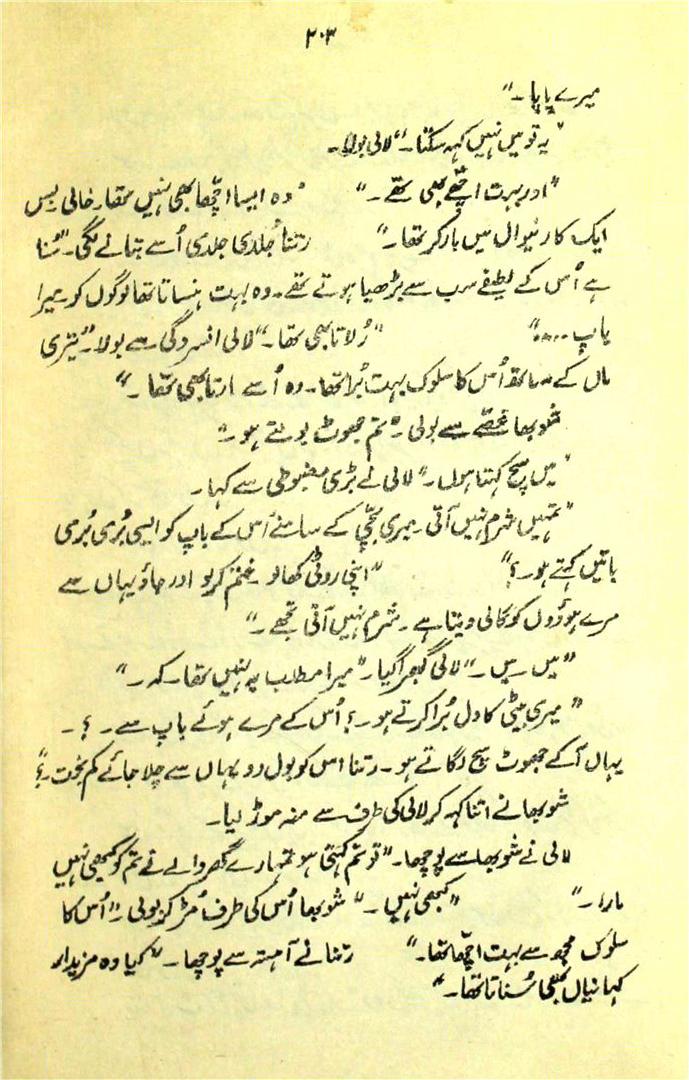 ۲۰۳
میرے پاپا۔"
"یہ تو میں نہیں کہہ سکتا۔" لالی بولا۔
"اور بہت اچھے بھی تھے۔" "وہ ایسا اچھا بھی نہیں تھا۔ خالی بس
ایک کارنیوال میں بارکر تھا۔" رتنا جلدی جلدی اُسے بتانے لگی۔ "سُنا
ہے اُس کے لطیفے سب سے بڑھیا ہوتے تھے۔ وہ بہت ہنساتا تھا لوگوں کو میرا
باپ ۔۔۔۔" "رُلاتا بھی تھا۔" لالی افسردگی سے بولا۔ "تیری
ماں کے ساتھ اُس کا سلوک بہت بُرا تھا۔ وہ اُسے مارتا بھی تھا۔"
شوبھا غصّے سے بولی۔ "تم جھوٹ بولتے ہو۔"
"میں سچ کہتا ہوں۔" لالی نے بڑی مضبوطی سے کہا۔
"تمہیں شرم نہیں آتی۔ میری بچّی کے سامنے اُس کے باپ کو ایسی بُری بُری
باتیں کہتے ہو۔؟" "اپنی روٹی کھالو۔ ختم کرلو اور جاؤ یہاں سے
مرے ہوؤں کو گالی دیتا ہے۔ شرم نہیں آتی تجھے۔"
"میں۔ میں۔" لالی گھبرا گیا۔ "میرا مطلب یہ نہیں تھا۔ کہ۔"
"میری بیٹی کا دل بُرا کرتے ہو۔؟ اُس کے مرے ہوئے باپ سے۔ ؟ ۔
یہاں آکے جھوٹ سچ لگاتے ہو۔ رتنا اس کو بول دو یہاں سے چلا جائے کم بخت۔؟"
شوبھا نے اتنا کہہ کر لالی کی طرف سے منہ موڑ لیا۔
لالی نے شوبھا سے پوچھا۔ "تو تم کہتی ہو تمہارے گھر والے نے تم کو کبھی نہیں
مارا۔" "کبھی نہیں۔" شوبھا اُس کی طرف مُڑ کر بولی۔ "اُس کا
سلوک مجھ سے بہت اچھا تھا۔" رتنا نے آہستہ سے پوچھا۔ "کیا وہ مزیدار
کہانیاں بھی سُناتا تھا۔"